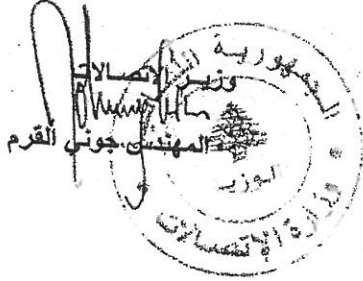 وزير الاتصالات
المهندس جوني القرم
الجمهورية اللبنانية
الوزير
وزارة الاتصالات